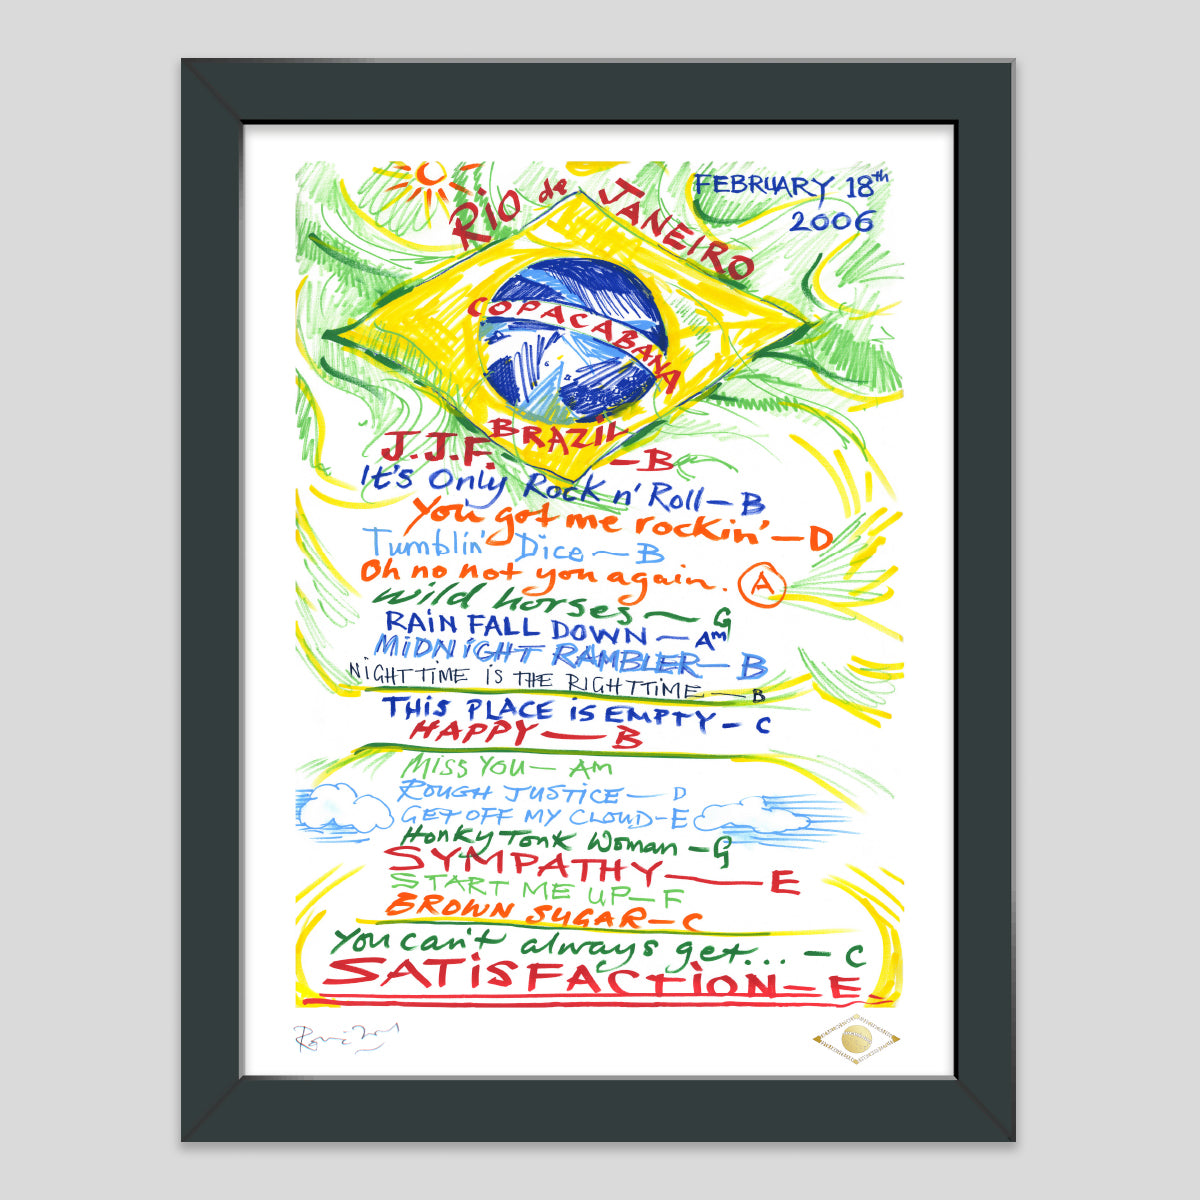 FEBRUARY 18th
2006
RiO de JANEIRO
COPACABANA
BRAZiL
J.J.F. - B
It's Only Rock n' Roll - B
You got me rockin' - D
Tumblin' Dice - B
Oh no not you again. A
Wild horses - G
RAiN FALL DOWN - Am
MiDNiGHT RAMBLER - B
NiGHT TIME IS THE RIGHT TIME - B
THiS PLACE iS EMPTY - C
HAPPY - B
MISS YOU - AM
ROUGH JUSTICE - D
GET OFF MY CLOUD - E
HonKy TonK Woman - G
SYMPATHY - E
START ME UP - F
BROWN SUGAR - C
You can't always get... - C
SATiSFACTiON - E